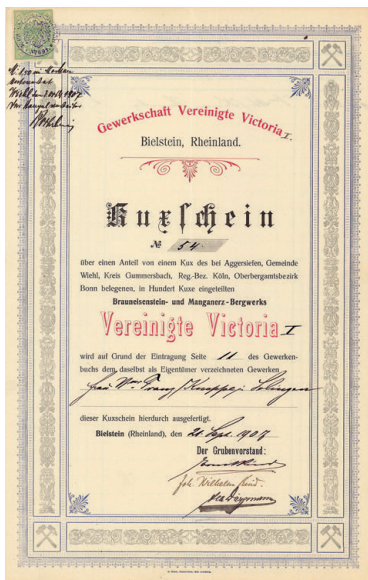 Wiehl
1907
Gewerkschaft Vereinigte Victoria I.
Bielstein, Rheinland.
Kuxschein
№ 54.
über einen Anteil von einem Kux des bei Aggersiefen, Gemeinde
Wiehl, Kreis Gummersbach, Reg.-Bez. Köln, Oberbergamtsbezirk
Bonn belegenen, in Hundert Kuxe eingeteilten
Brauneisenstein- und Manganerz-Bergwerks
Vereinigte Victoria I
wird auf Grund der Eintragung Seite 11 des Gewerken-
buchs dem daselbst als Eigentümer verzeichneten Gewerken
Frau Wwe. Franz Knappe, Solingen
dieser Kuxschein hierdurch ausgefertigt.
Bielstein (Rheinland), den 21 Sept. 1907
Der Grubenvorstand:
Joh. Wilhelm